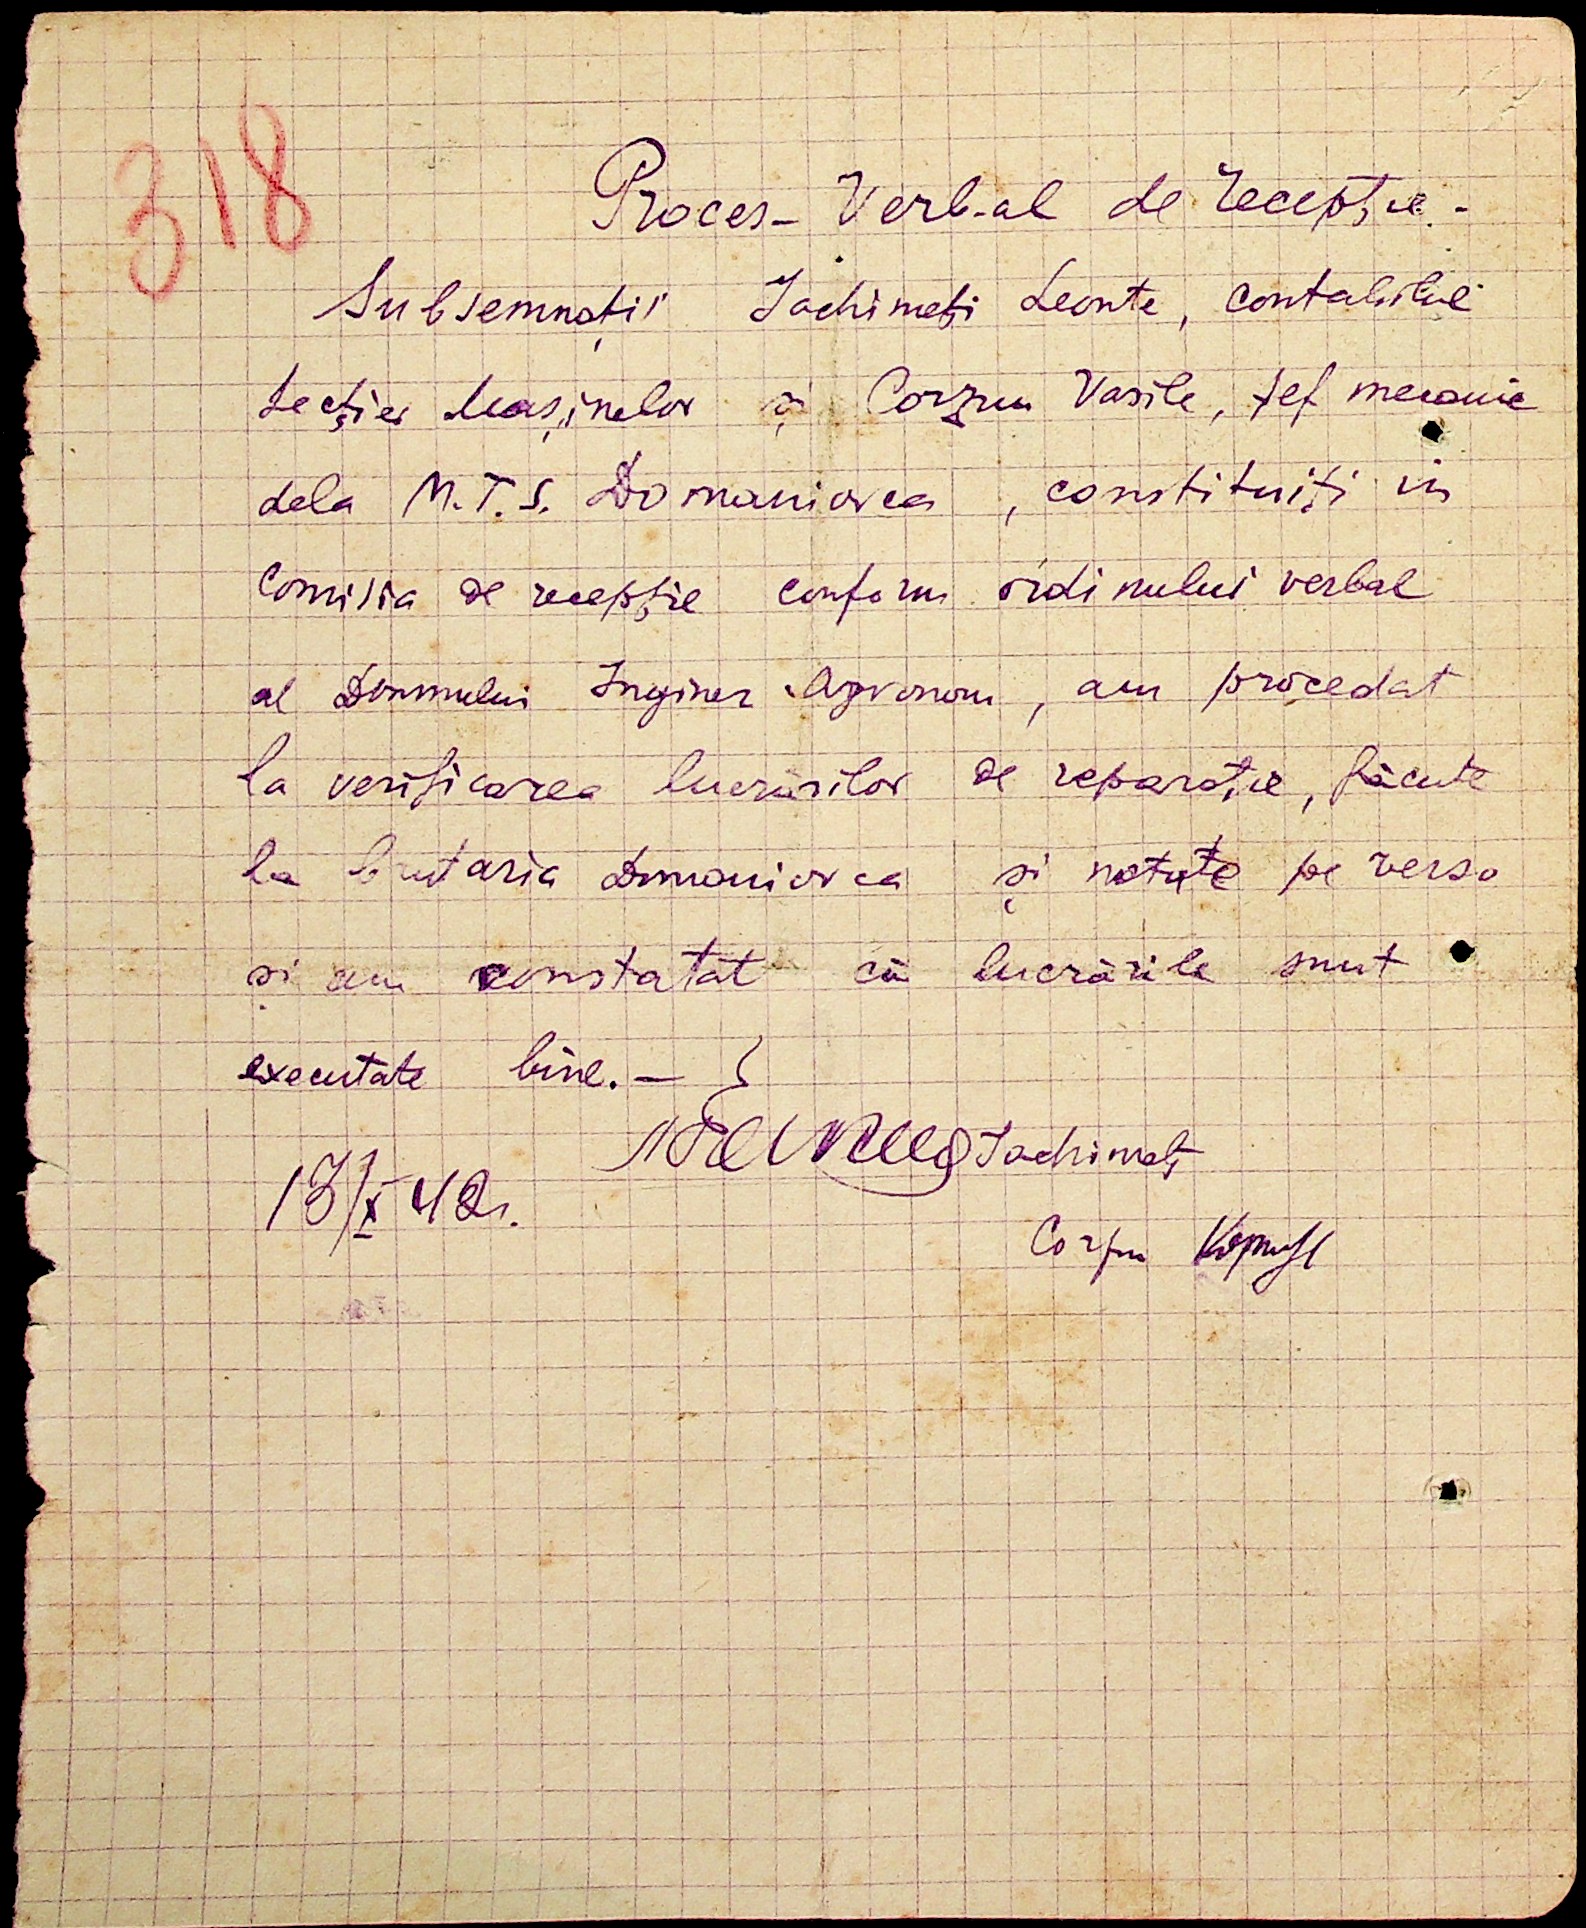 318
Proces-Verbal de recepție.-
Subsemnații Iachimeți Leonte, contabilul
secției Mașinelor și Corzun Vasile, șef mecanic
dela M.T.S. Domaniovca, constituiți in
Comisia de recepție conform ordinului verbal
al Domnului Inginer Agronom, am procedat
la verificarea lucrărilor de reparație, făcute
la brutaria Domaniovca și notate pe verso
și am constatat că lucrările sunt
executate bine.-
Iachimeț
13/X 42.
Corzun